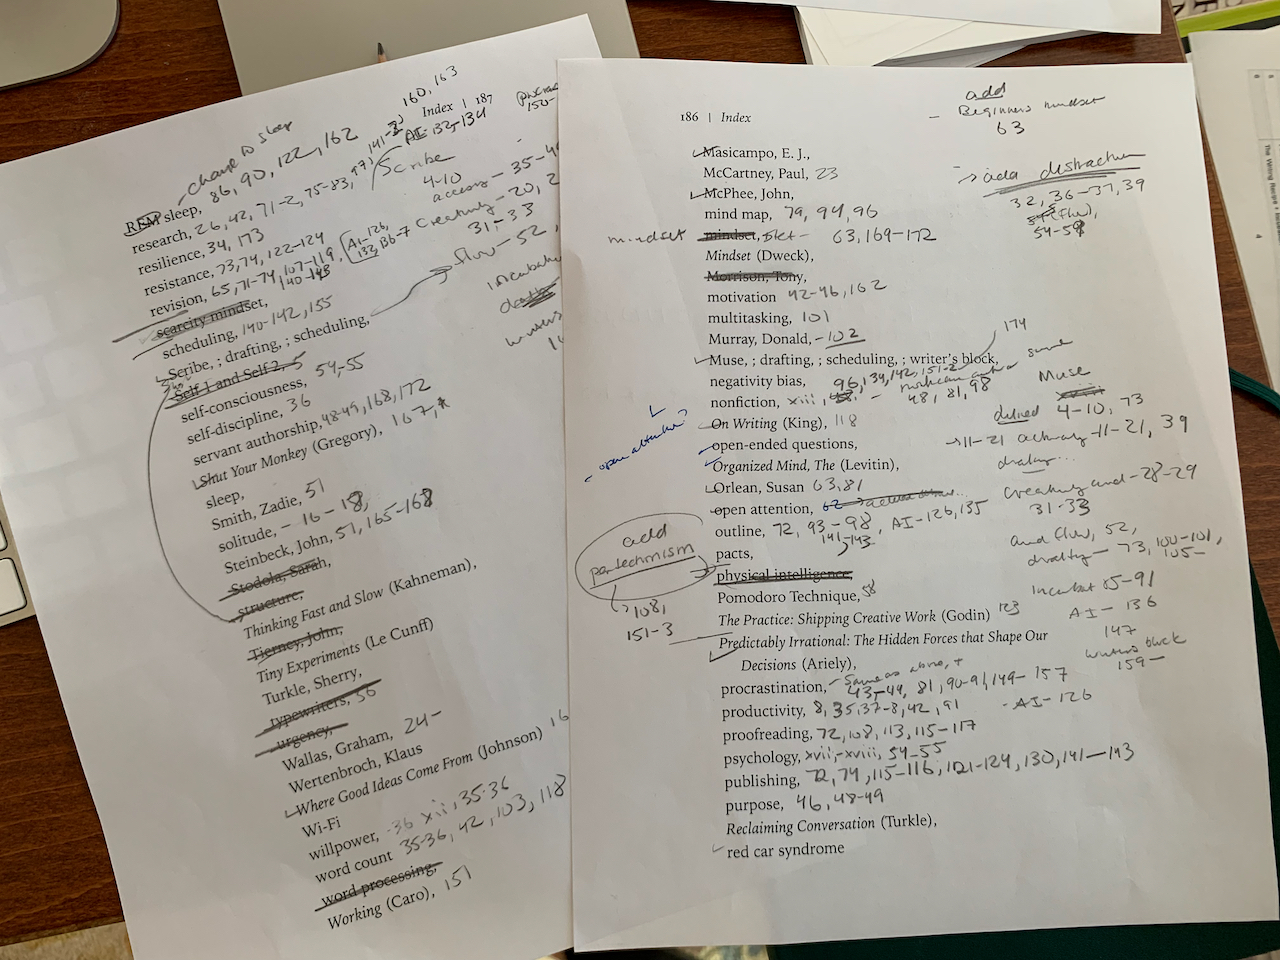 160, 163
Index | 187
AI-132-134
change to sleep
REM sleep, 86, 90, 122, 162
research, 26, 42, 71-2, 75-83, 97, 141-3
Scribe
4-10
resilience, 34, 173
access - 35-
resistance, 73, 74, 122-124
AI-126, 133, 136-7
Creating - 20, 2
31-33
revision, 65, 71-74, 107-119, 140-143
flow - 52,
scarcity mindset,
scheduling, 140-142, 155
Scribe, ; drafting, ; scheduling,
Self 1 and Self 2, 5
self-consciousness, 54-55
self-discipline, 36
servant authorship, 48-49, 168, 172
Shut Your Monkey (Gregory), 167,
sleep,
Smith, Zadie, 51
solitude, - 16-18,
Steinbeck, John, 51, 165-168
Stodola, Sarah,
structure,
Thinking Fast and Slow (Kahneman),
Tierney, John,
Tiny Experiments (Le Cunff)
Turkle, Sherry,
typewriters, 56
urgency,
Wallas, Graham, 24-
Wertenbroch, Klaus
Where Good Ideas Come From (Johnson) 16
Wi-Fi
willpower, -36 xii, 35-36
word count 35-36, 42, 103, 118
word processing,
Working (Caro), 151
186 | Index
add
- Beginners mindset
63
Masicampo, E. J.,
McCartney, Paul, 23
McPhee, John,
mind map, 79, 94, 96
mindset mindset, 63, 169-172
Mindset (Dweck),
Morrison, Tony,
motivation 42-46, 162
multitasking, 101
Murray, Donald, - 102
Muse, ; drafting, ; scheduling, ; writer's block, 174
negativity bias, 96, 134, 142, 151-2
nonfiction, xiii, 48, 81, 98
On Writing (King), 118
open-ended questions,
Organized Mind, The (Levitin),
Orlean, Susan 63, 81
open attention, 62
outline, 72, 93-98, AI-126, 135
141-143
pacts,
physical intelligence,
Pomodoro Technique, 58
The Practice: Shipping Creative Work (Godin) 123
Predictably Irrational: The Hidden Forces that Shape Our
Decisions (Ariely),
procrastination, - Same as above, +
43-44, 81, 90-91, 149-157
productivity, 8, 35, 37-8, 42, 91 - AI-126
proofreading, 72, 108, 113, 115-117
psychology, xvii-xviii, 54-55
publishing, 72, 74, 115-116, 121-124, 130, 141-143
purpose, 46, 48-49
Reclaiming Conversation (Turkle),
red car syndrome
add
perfectionism
108,
151-3
add distraction
32, 36-37, 39
(flow),
54-59
Muse
defined 4-10, 73
11-21 activity 11-21, 39
Creativity and - 28-29
31-33
and flow, 52,
drafting - 73, 100-101,
105-
Incubat 85-91
AI - 136
147
writers block
159-